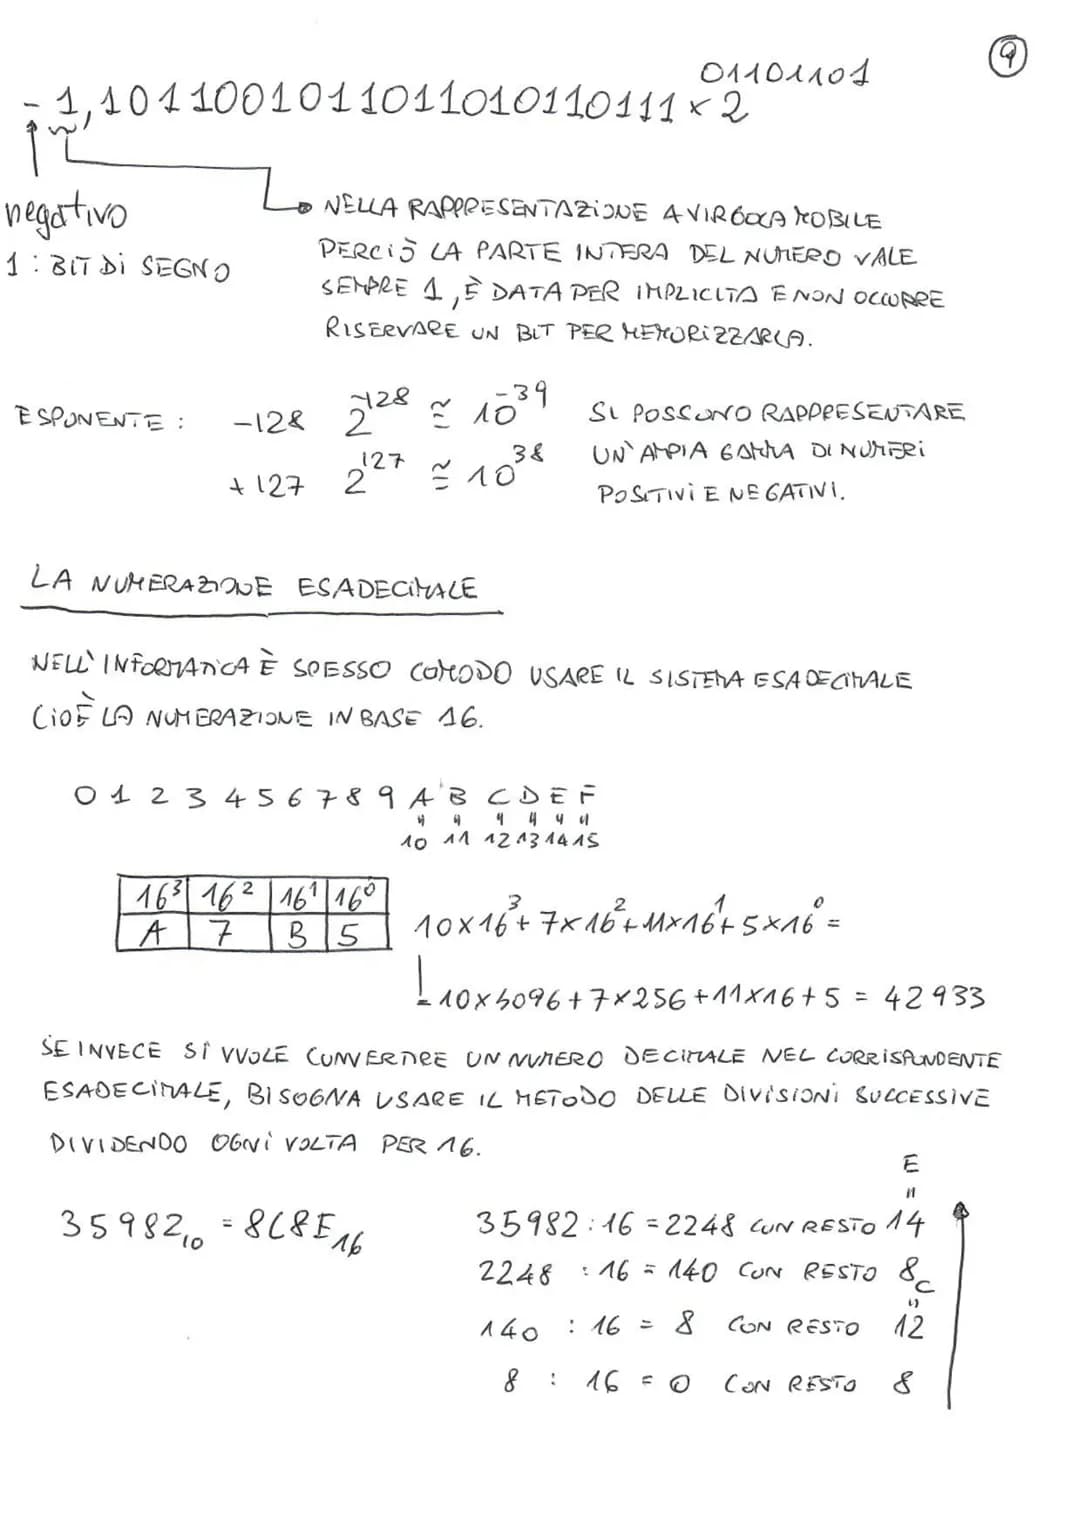 9
01101101
- 1,10110010110110101101 11 × 2
negativo
1 : BIT DI SEGNO
NELLA RAPPRESENTAZIONE A VIRGOLA MOBILE
PERCIÒ LA PARTE INTERA DEL NUMERO VALE
SEMPRE 1, È DATA PER IMPLICITA E NON OCCORRE
RISERVARE UN BIT PER MEMORIZZARLA.
ESPONENTE : -128 2^-128 ≅ 10^-39 SI POSSONO RAPPRESENTARE
+127 2^127 ≅ 10^38 UN'AMPIA GAMMA DI NUMERI
POSITIVI E NEGATIVI.
LA NUMERAZIONE ESADECIMALE
NELL'INFORMATICA È SPESSO COMODO USARE IL SISTEMA ESADECIMALE
CIOÈ LA NUMERAZIONE IN BASE 16.
0 1 2 3 4 5 6 7 8 9 A B C D E F
" " " " " "
10 11 12 13 14 15
16³ 16² 16¹ 16⁰
A 7 B 5
10×16³ + 7×16² + 11×16¹ + 5×16⁰ =
= 10×4096 + 7×256 + 11×16 + 5 = 42933
SE INVECE SI VUOLE CONVERTIRE UN NUMERO DECIMALE NEL CORRISPONDENTE
ESADECIMALE, BISOGNA USARE IL METODO DELLE DIVISIONI SUCCESSIVE
DIVIDENDO OGNI VOLTA PER 16.
35982₁₀ = 8C8E₁₆
E
"
35982 : 16 = 2248 CON RESTO 14
2248 : 16 = 140 CON RESTO 8
C
"
140 : 16 = 8 CON RESTO 12
8 : 16 = 0 CON RESTO 8